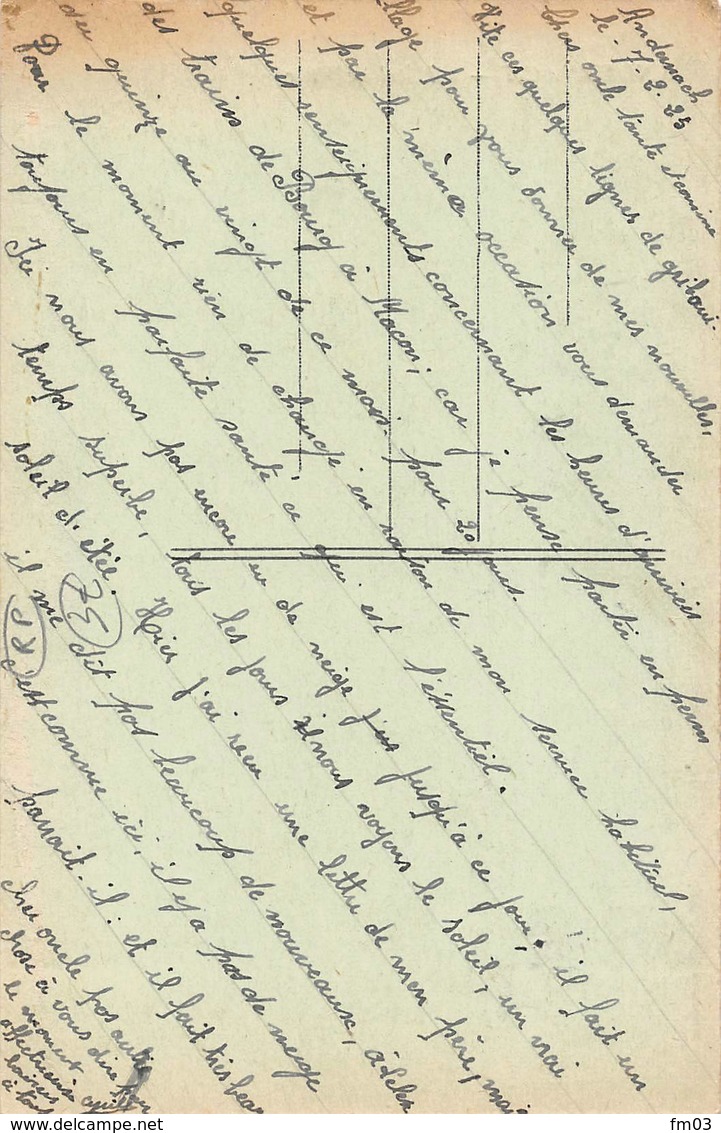 Andernach
le - 7 - 2 - 25
Chers oncle tante et cousine
Vite ces quelques lignes de gribouil-
llage pour vous donner de mes nouvelles,
et par la même occasion vous demander
quelques renseignements concernant les heures d'arrivées
des trains de Bourg à Macon; car je pense partir en perm
du quinze au vingt de ce mois. pour 20 jours.
Pour le moment rien de changé en raison de mon service habituel,
toujours en parfaite santé ce qui est l'éssentiel.
Ici nous avons pas encore eu de neige jus jusqu'à ce jour; il fait un
temps superbe, tous les jours nous voyons le soleil, un vrai
soleil d'étée. Hier j'ai reçu une lettre de mon père, mais
il me dit pas beaucoup de nouveaux, à
c'est comme ici, il y a pas de neige
parait-il: et il fait très beau
cher oncle pas autre
chose à vous dire pour
le moment
affectueux
baisers
à tous
fm03